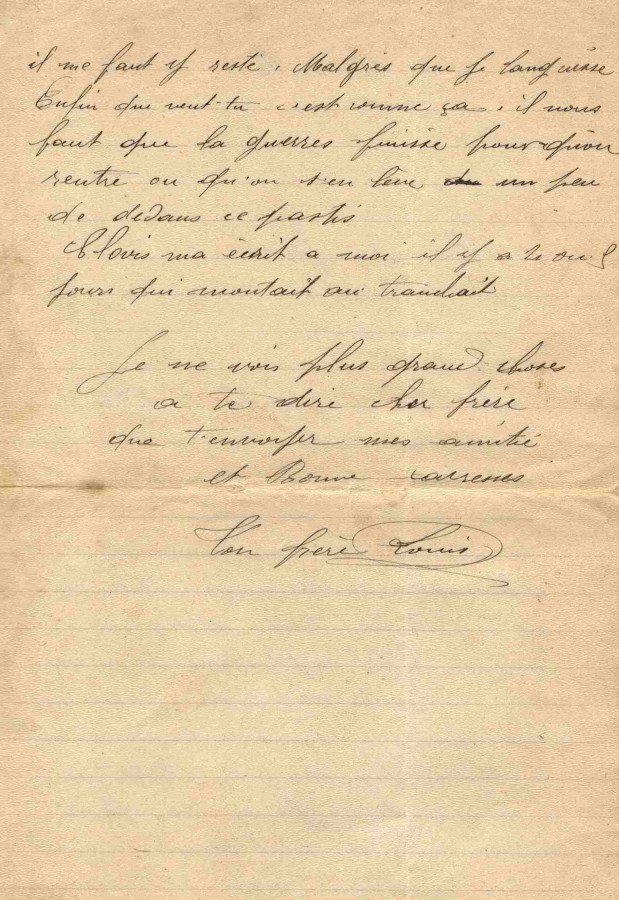 il me faut y resté. Malgrés que je languisse
Enfin que veut-tu c'est comme ça. il nous
faut que la guerres finisse pour qu'on
rentre ou qu'on s'en lève un peu
de dedans ce pastis
Clovis ma écrit a moi il y a
jours qui montait au tranchait
Je ne vois plus grand choses
a te dire cher frère
que t'envoyer mes amitié
et Bonne caresses
Ton frère Louis